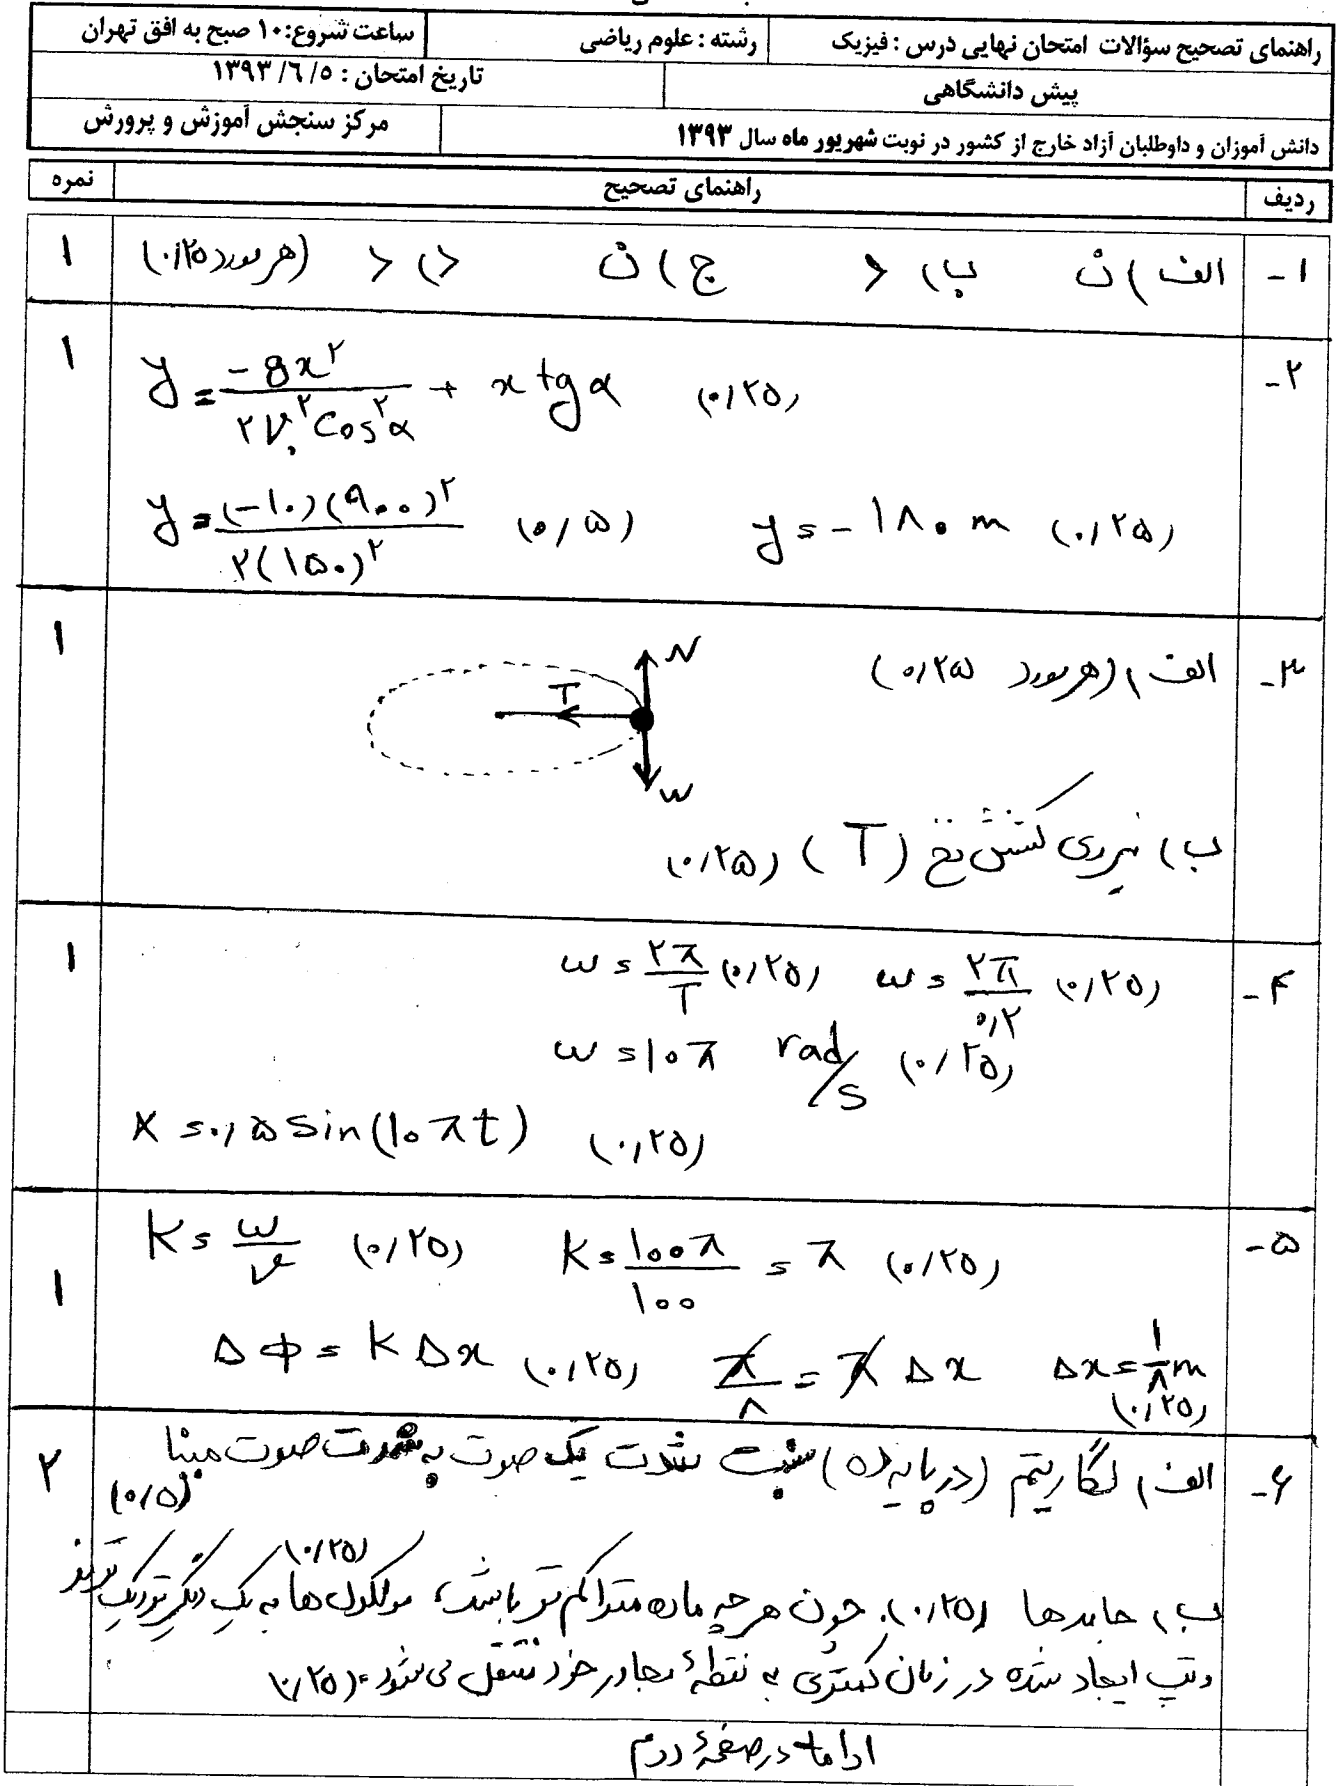 راهنمای تصحیح سؤالات امتحان نهایی درس : فیزیک
رشته : علوم ریاضی
ساعت شروع:۱۰ صبح به افق تهران
پیش دانشگاهی
تاریخ امتحان : ۱۳۹۳/۶/۵
دانش آموزان و داوطلبان آزاد خارج از کشور در نوبت شهریور ماه سال ۱۳۹۳
مرکز سنجش آموزش و پرورش
ردیف راهنمای تصحیح نمره
۱- الف) ث ب) > ج) ث د) < (هر مورد ۰/۲۵) ۱
۲- y = -gx²/۲V₀²Cos²α + x tgα (۰/۲۵) ۱
y = (-۱۰)(۹۰۰)²/۲(۱۵۰)² (۰/۵) y = -۱۸۰ m (۰/۲۵)
۳- الف) (هر مورد ۰/۲۵) ۱
N
T
W
ب) نیروی کشش نخ (T) (۰/۲۵)
۴- ω = ۲π/T (۰/۲۵) ω = ۲π/۰/۲ (۰/۲۵) ۱
ω = ۱۰π rad/s (۰/۲۵)
x = ۰/۵ Sin(۱۰πt) (۰/۲۵)
۵- K = ω/v (۰/۲۵) K = ۱۰۰π/۱۰۰ = π (۰/۲۵) ۱
Δφ = KΔx (۰/۲۵) π/۸ = πΔx Δx = ۱/۸ m (۰/۲۵)
۶- الف) لگاریتم (در پایه ده) نسبت شدت یک صوت به شدت صوت مبنا (۰/۵) ۲
ب) جامدها (۰/۲۵). چون هر چه ماده متراکم تر باشد، مولکول ها به یک دیگر نزدیک ترند (۰/۲۵)
و تپ ایجاد شده در زمان کمتری به نقطهٔ مجاور خود منتقل می شود. (۰/۲۵)
ادامه در صفحهٔ دوم